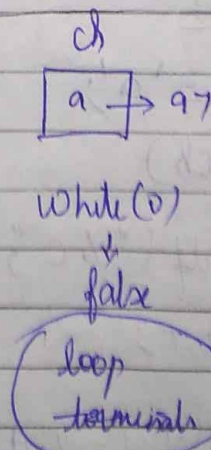 ch
a → 97
while(0)
↓
false
loop
terminals